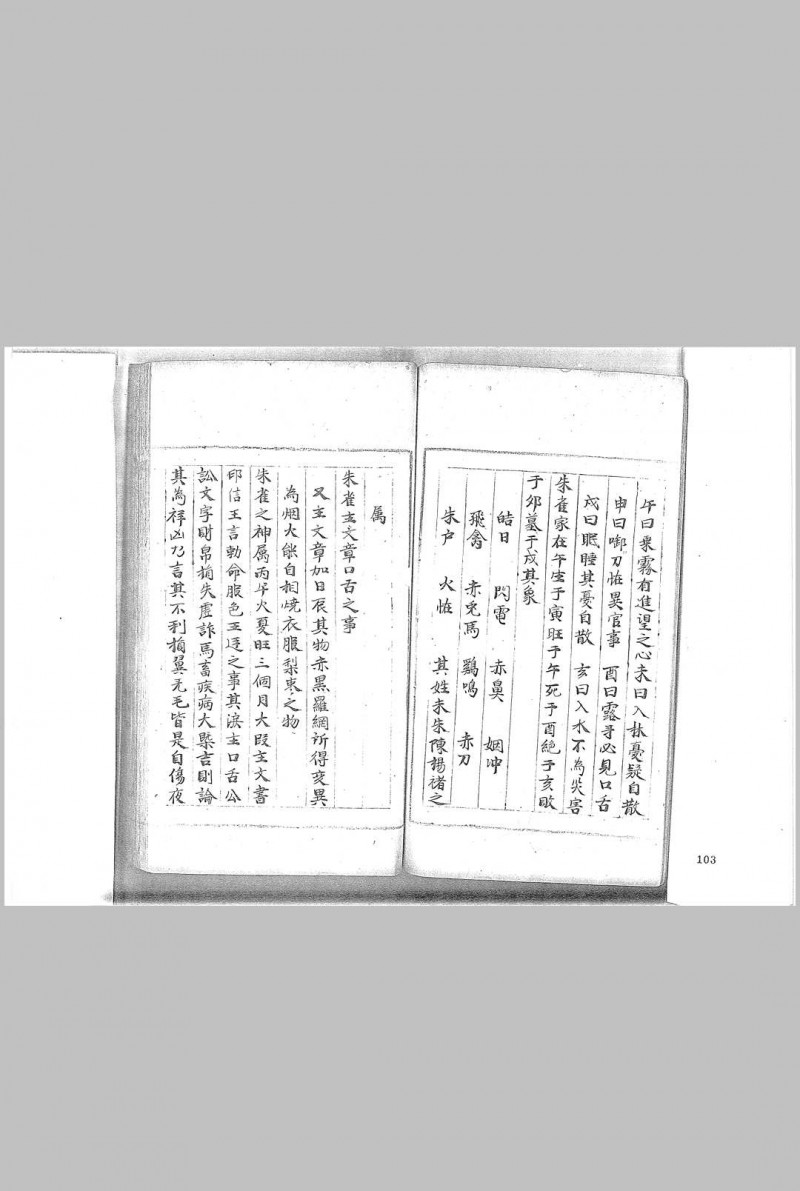 午曰乘霧有進望之心未曰入林憂疑自散
申曰啣刀怪異官事 酉曰露牙必見口舌
戍曰眠睡其憂自散 亥曰入水不為災害
朱雀家在午生于寅旺于午死于酉絕于亥敗
于卯墓于戍其象
皓日 閃電 赤鼻 姻冲
飛禽 赤兎馬 鷄鳴 赤刀
朱户 火怪 其姓朱陳楊褚之
属
朱雀主文章口舌之事
又主文章加日辰其物赤黑羅網所得变異
為烟火能自相燒衣服梨棗之物
朱雀之神属丙午火夏旺三個月大段主文書
印信王言勅命服色王廷之事其淚主口舌公
訟文字財帛損失虛詐馬畜疾病大槩吉則論
其為祥凶乃言其不利損翼无毛皆是自傷夜
103